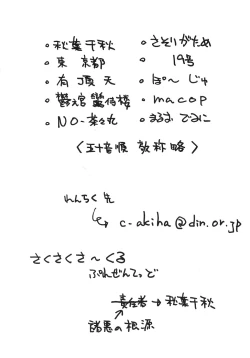 。秋葉千秋
。東 京都
。有頂天
。鬱宮蠻伯楼
。NO-茶々丸
。さそりがため
。19号
。ぽ〜じゅ
。macop
。まるお でるに
〈五十音順 敬称略〉
れんらく先
↳ c-akiha@din.or.jp
さくさくさ〜くる
ぷれぜんてっど
責任者 → 秋葉千秋
↑
諸悪の根源